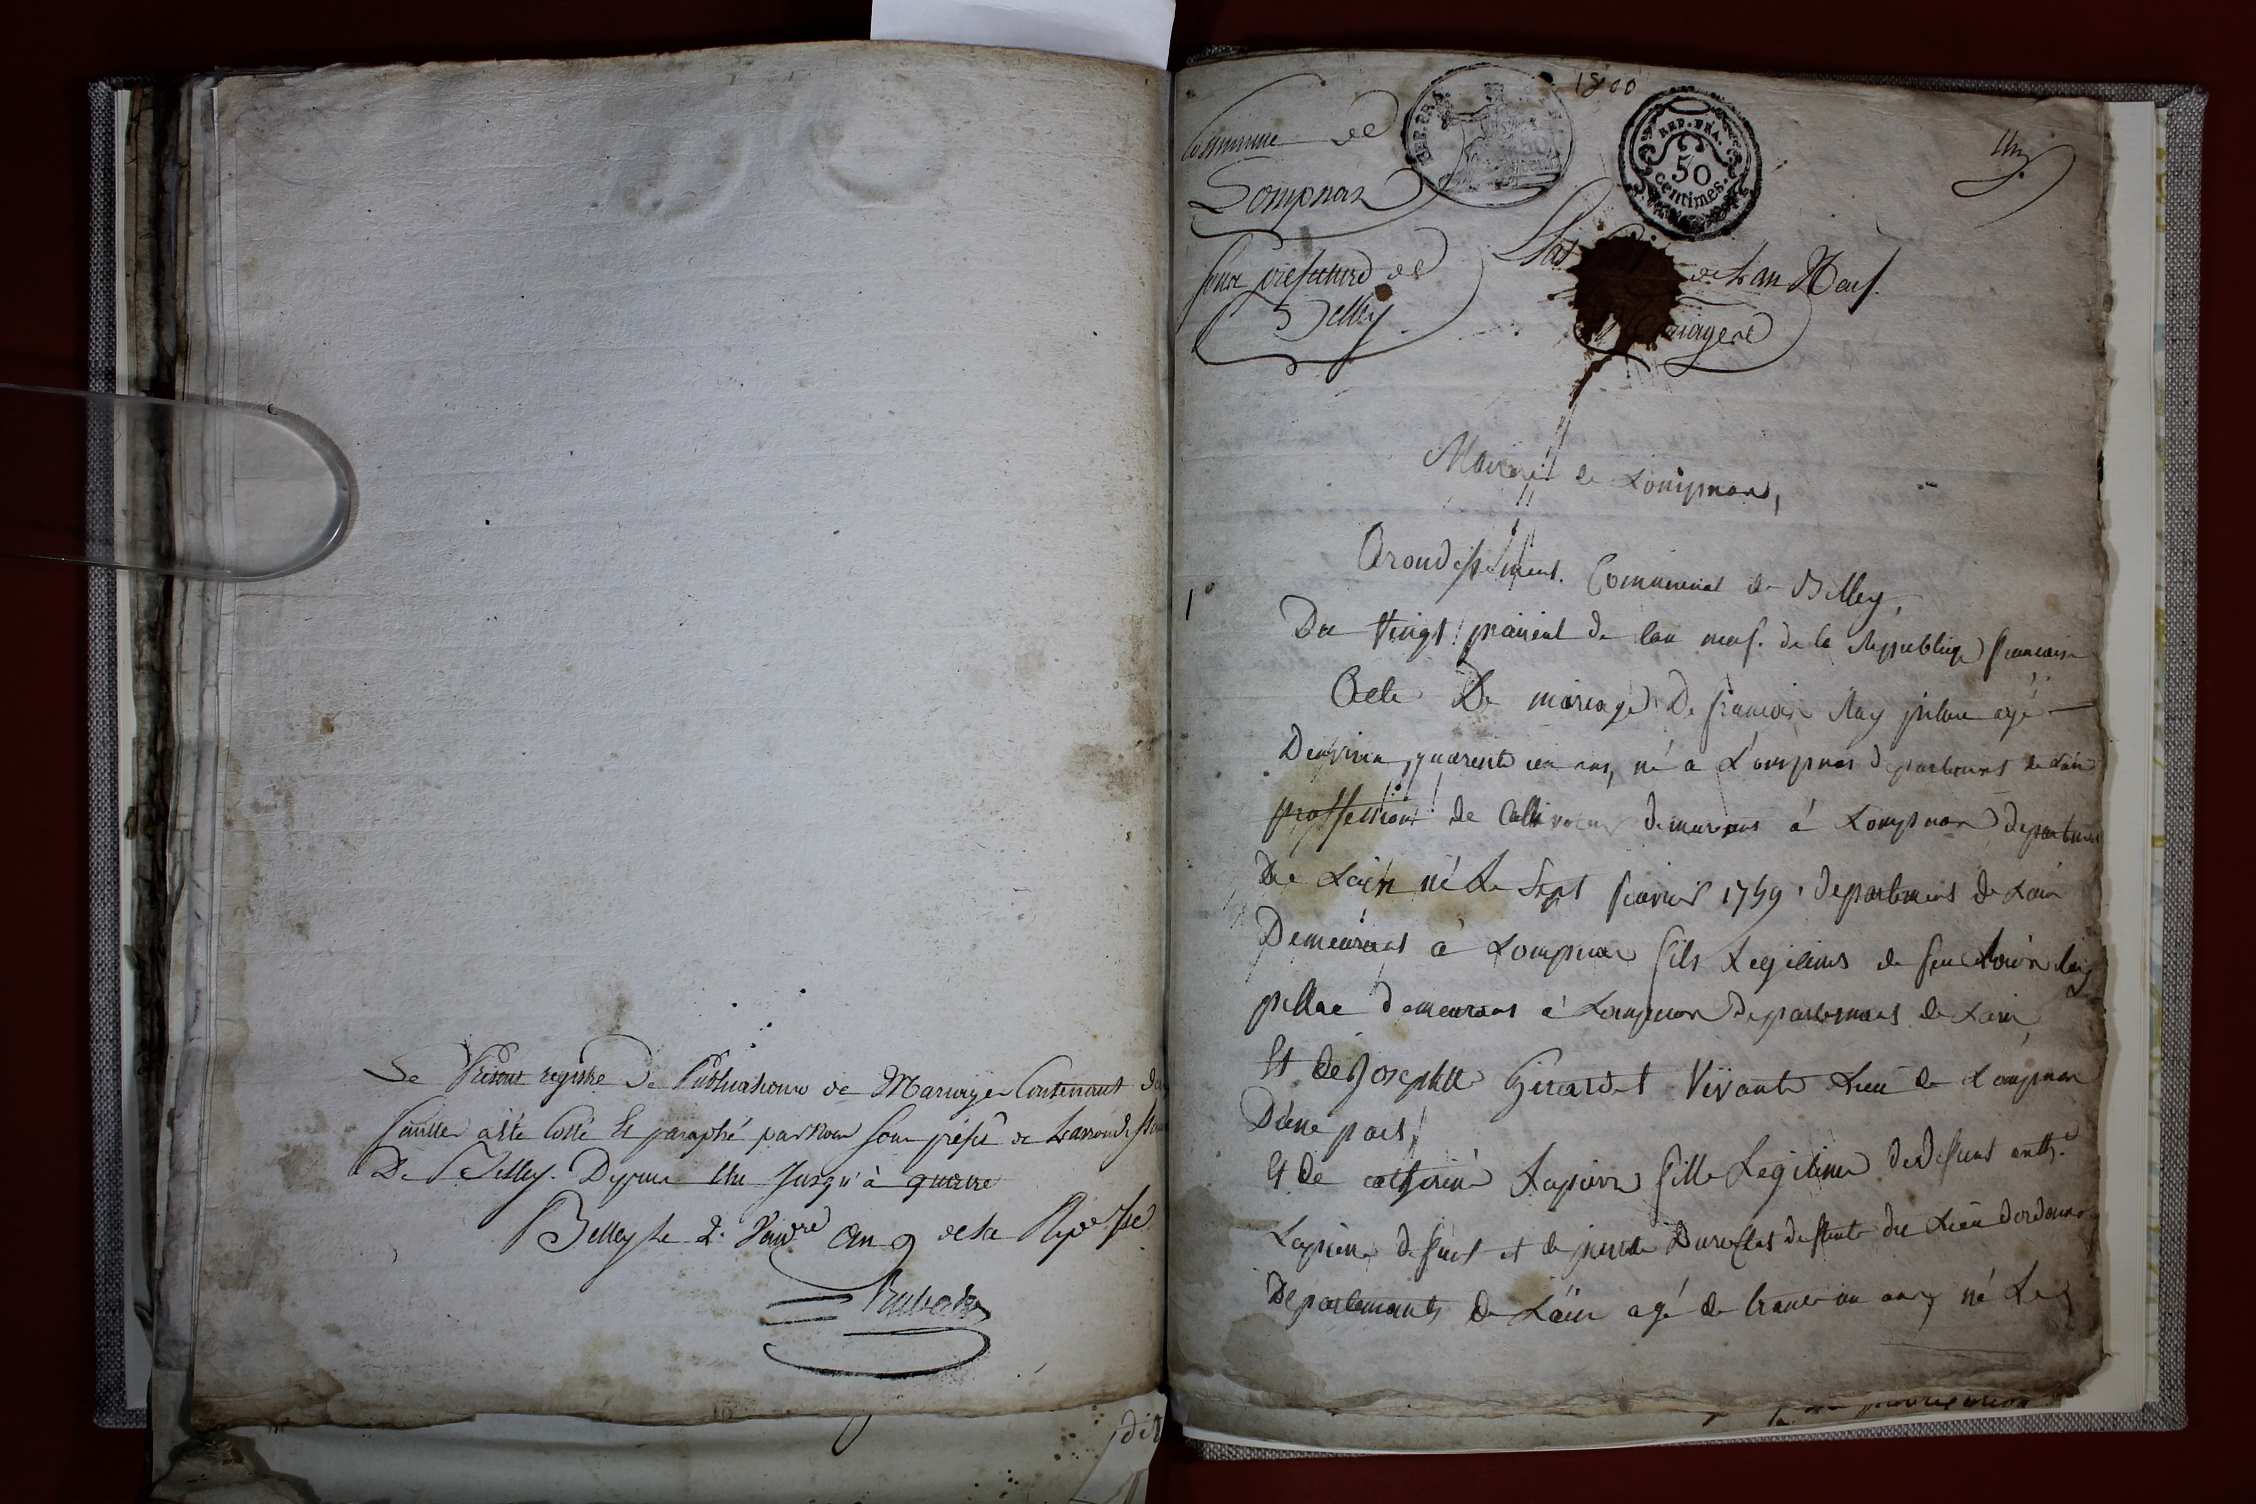 Le Présent registre de Publications de Mariages Contenant deux
feuilles a été Cotté et paraphé par Nous sous préfet de Larrondissement
De Belley. Depuis Un Jusqu'à quatre
Belley le 2. Vendre an 9 de la Repe fse
1800
Commune de
Lompnas
REP. FRA.
50
centimes.
Un
sous préfecture de
Belley
de Lan Neuf
Mairie de Lompnas,
Arondissement Communal de Belley,
1°
Du Vingt prairial de lan neuf. de la République francaise
Acte De mariage De francois Ray pilue agé
quarente un ans, né a Lompnas departement de Lain
proffession de Cultivateur demeurant á Lompnas departement
De Lain né Le Sept fevrier 1759. departement de Lain
Demeurant à Lompnas fils Legitime de feu
demeurant á Lompnas Departement de Lain
Et de Josephte Girardet Vivante Lieu de Lompnas
D'une part,
Et de catherine Lapierre fille Legitime de defunt anth.e
Lapierre defunt et de defunte du Lieu Dordonnas
Departement de Lain agé de trante un ans né Le